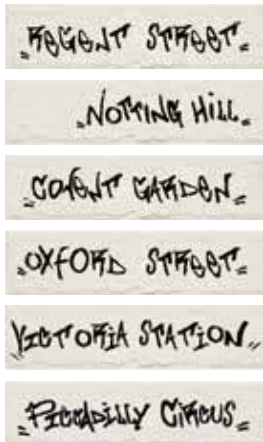 „REGENT STREET„
„NOTTING HILL„
„COVENT GARDEN„
„OXFORD STREET„
„VICTORIA STATION„
„PICCADILLY CIRCUS„